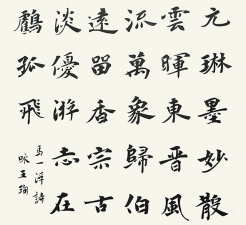 元琳墨妙散
雲暉東晉風
流萬象歸伯
遠留香宗古
淡優游志在
鸖孤飛
馬一洋詩
咏王珣